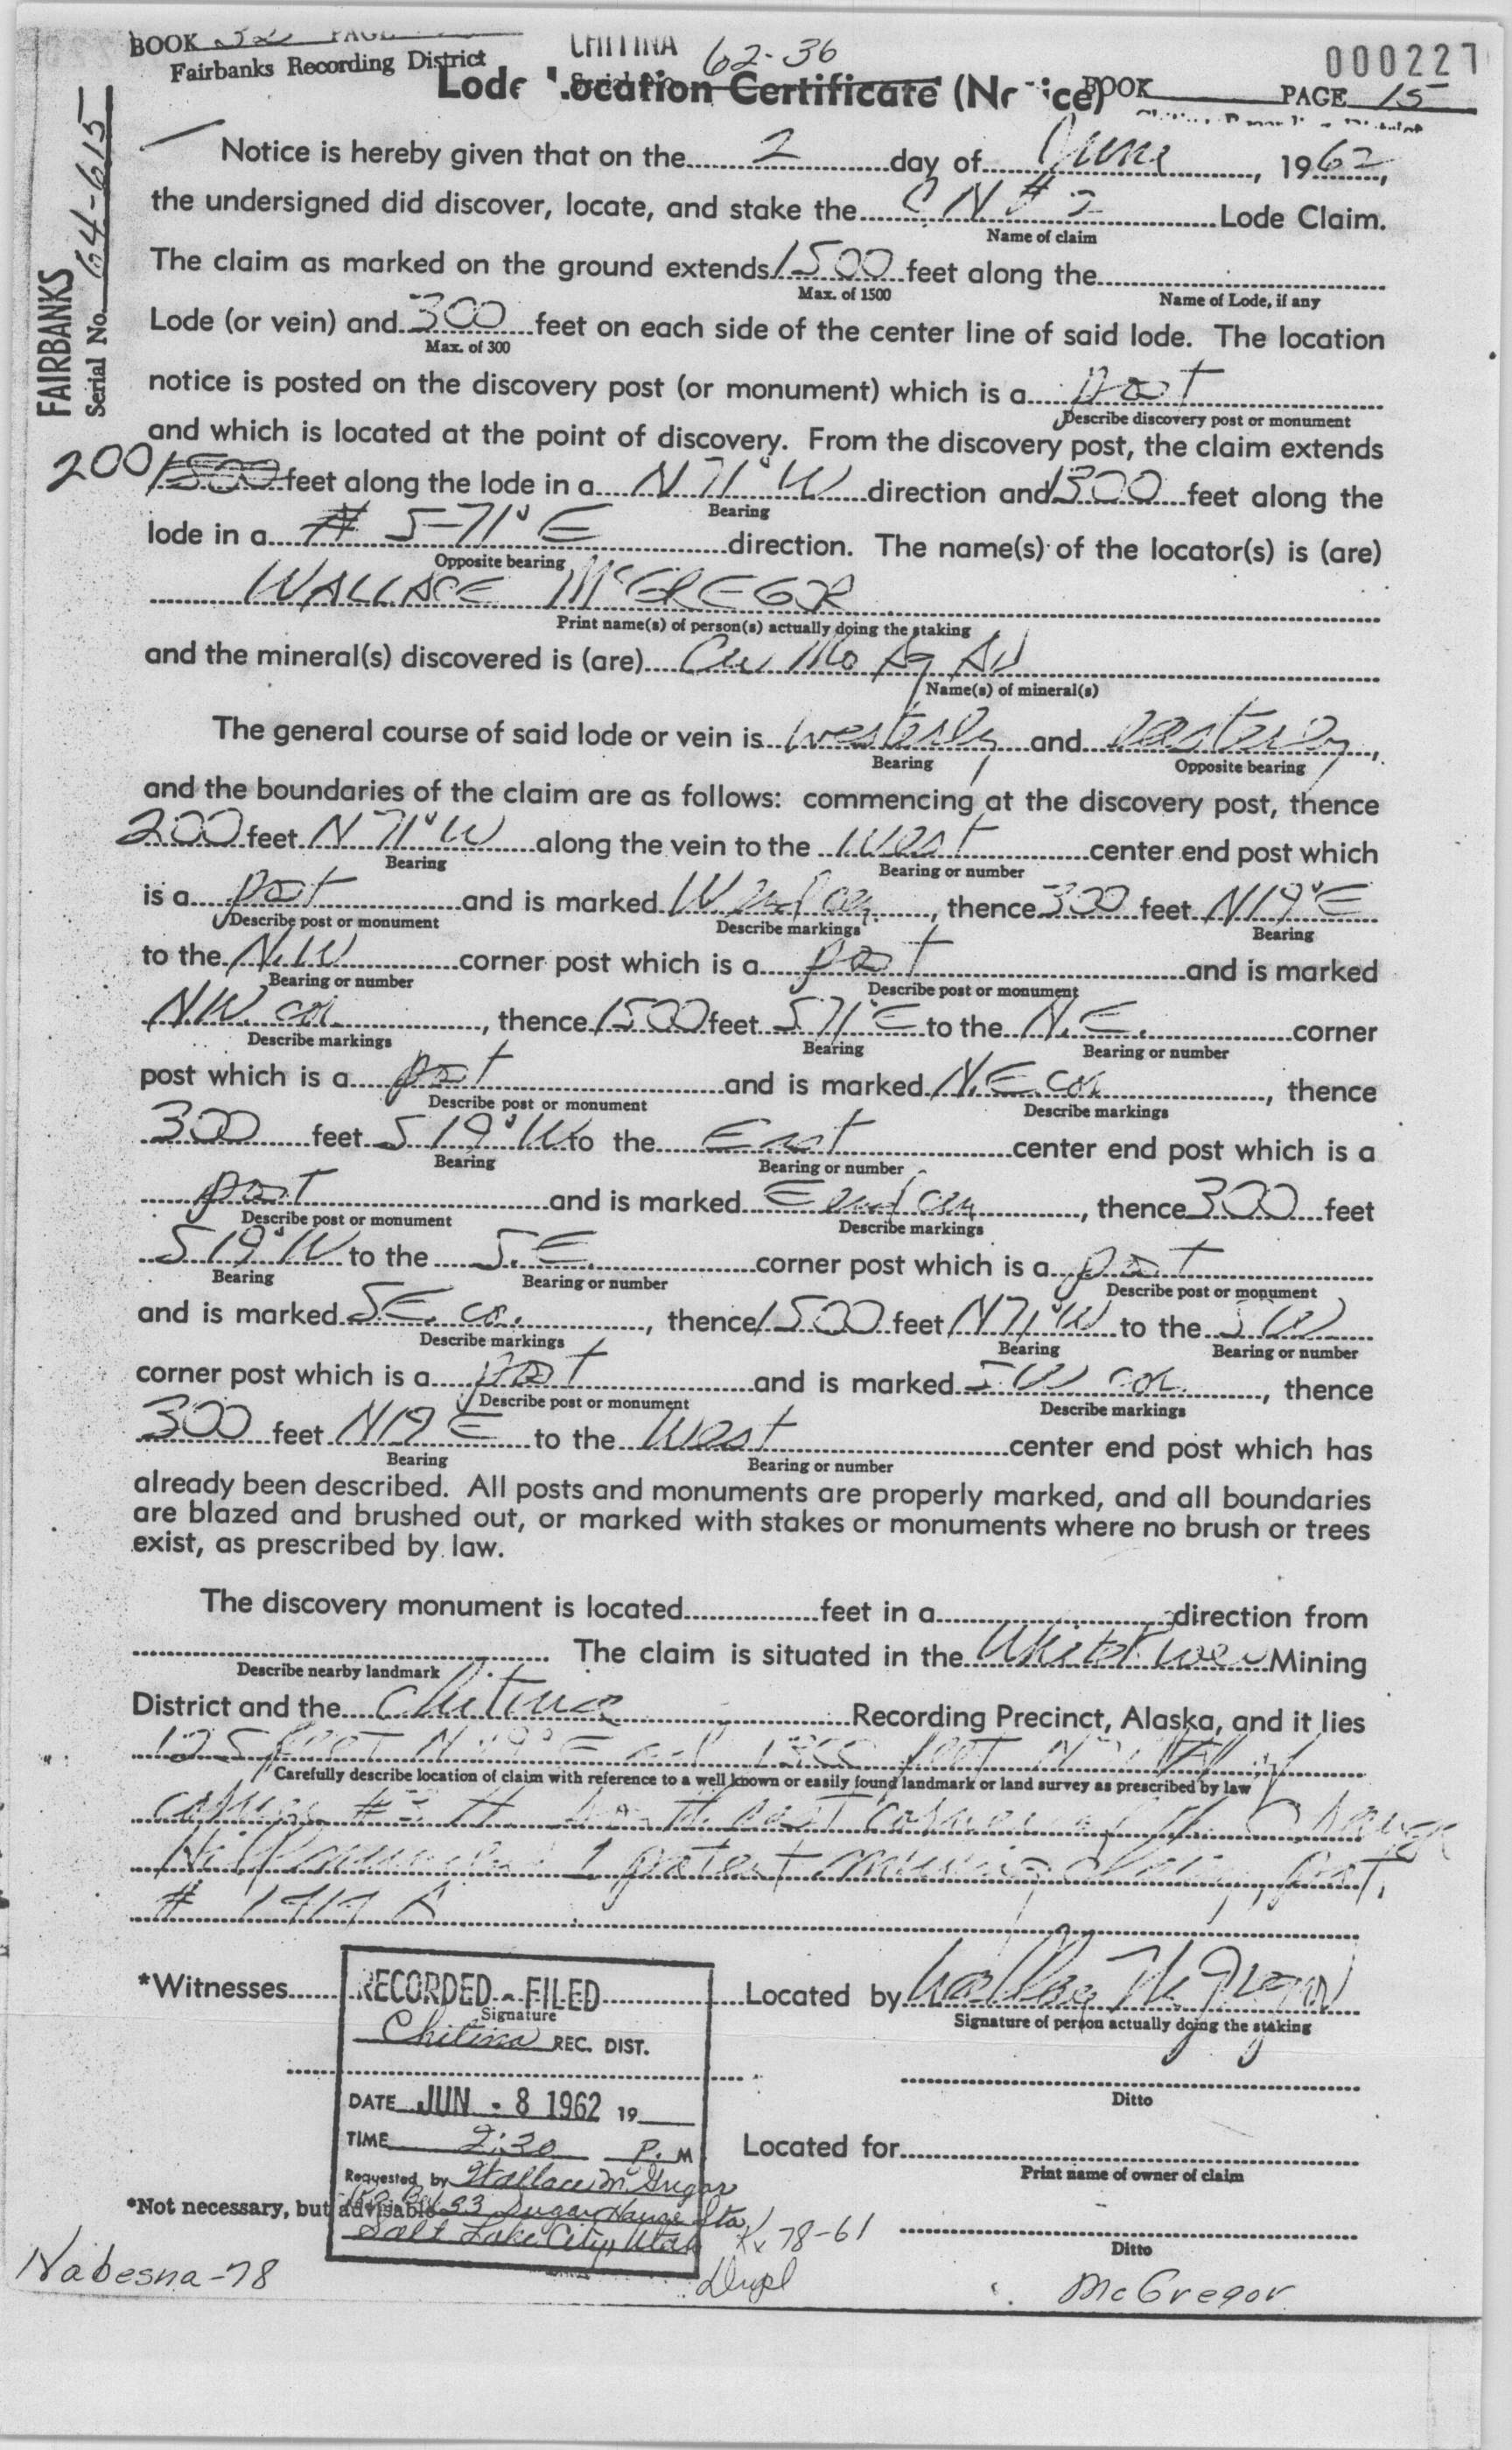 BOOK 32 PAGE
Fairbanks Recording District
CHITINA 62-36
Serial No.
000227
Lode Location Certificate (Notice)
BOOK PAGE 15
FAIRBANKS
Serial No. 64-615
Notice is hereby given that on the 2 day of June, 1962,
the undersigned did discover, locate, and stake the C N # 2 Lode Claim.
Name of claim
The claim as marked on the ground extends 1500 feet along the
Max. of 1500 Name of Lode, if any
Lode (or vein) and 300 feet on each side of the center line of said lode. The location
Max. of 300
notice is posted on the discovery post (or monument) which is a post
Describe discovery post or monument
and which is located at the point of discovery. From the discovery post, the claim extends
200 1500 feet along the lode in a N 71° W direction and 1300 feet along the
Bearing
lode in a N S 71° E direction. The name(s) of the locator(s) is (are)
Opposite bearing
WALLACE McGREGOR
Print name(s) of person(s) actually doing the staking
and the mineral(s) discovered is (are) Cu Mo Ag AU
Name(s) of mineral(s)
The general course of said lode or vein is westerly and easterly,
Bearing Opposite bearing
and the boundaries of the claim are as follows: commencing at the discovery post, thence
200 feet N 71° W along the vein to the West center end post which
Bearing Bearing or number
is a post and is marked W end cen., thence 300 feet N19°E
Describe post or monument Describe markings Bearing
to the N.W corner post which is a post and is marked
Bearing or number Describe post or monument
NW. cor., thence 1500 feet S71°E to the N.E. corner
Describe markings Bearing Bearing or number
post which is a post and is marked N.E. cor, thence
Describe post or monument Describe markings
300 feet S 19° W to the East center end post which is a
Bearing Bearing or number
post and is marked E end cen, thence 300 feet
Describe post or monument Describe markings
S 19° W to the S.E. corner post which is a post
Bearing Bearing or number Describe post or monument
and is marked SE. co., thence 1500 feet N71°W to the SW
Describe markings Bearing Bearing or number
corner post which is a post and is marked SW cor, thence
Describe post or monument Describe markings
300 feet N19 E to the West center end post which has
Bearing Bearing or number
already been described. All posts and monuments are properly marked, and all boundaries
are blazed and brushed out, or marked with stakes or monuments where no brush or trees
exist, as prescribed by law.
The discovery monument is located feet in a direction from
The claim is situated in the White River Mining
Describe nearby landmark
District and the Chitina Recording Precinct, Alaska, and it lies
125 feet N 19° E and feet of
Carefully describe location of claim with reference to a well known or easily found landmark or land survey as prescribed by law
corner # the east corner of the Orange
Hill 1 patent mining claim, pat.
#
*Witnesses Located by Wallace McGregor
Signature Signature of person actually doing the staking
RECORDED - FILED
Chitina REC. DIST.
Ditto
DATE JUN - 8 1962 19
TIME 2:30 P. M
Located for
Print name of owner of claim
Requested by Wallace McGregor
*Not necessary, but advisable
Box 33 Sugar House Sta
Salt Lake City, Utah
Kx 78-61
Ditto
Nabesna-78
Dupl
McGregor